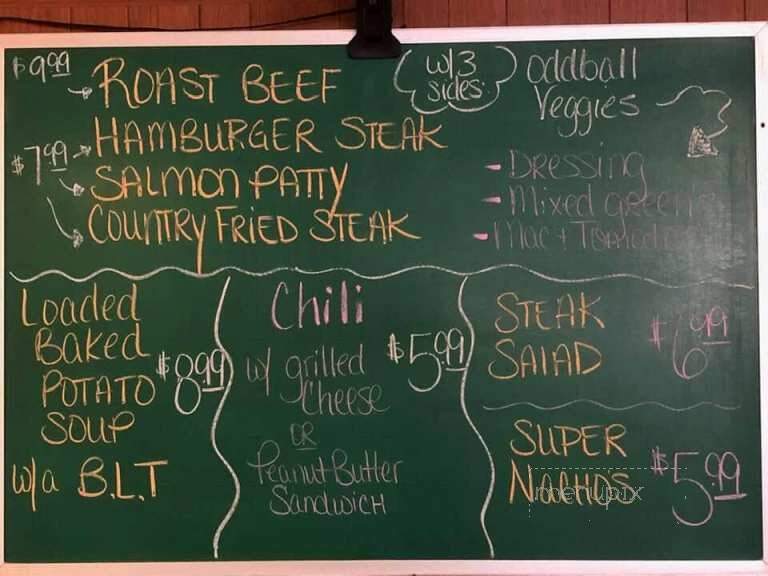 $9.99 ROAST BEEF
HAMBURGER STEAK
$7.99 SALMON PATTY
COUNTRY FRIED STEAK
w/3
sides
oddball
Veggies
- Dressing
- Mixed greens
- Mac + Tomatoes
Loaded
Baked
POTATO
SOUP
w/a B.L.T
$8.99
Chili
w/ grilled
Cheese
OR
Peanut Butter
Sandwich
$5.99
STEAK
SALAD
$6.99
SUPER
NACHOS
$5.99
menupix